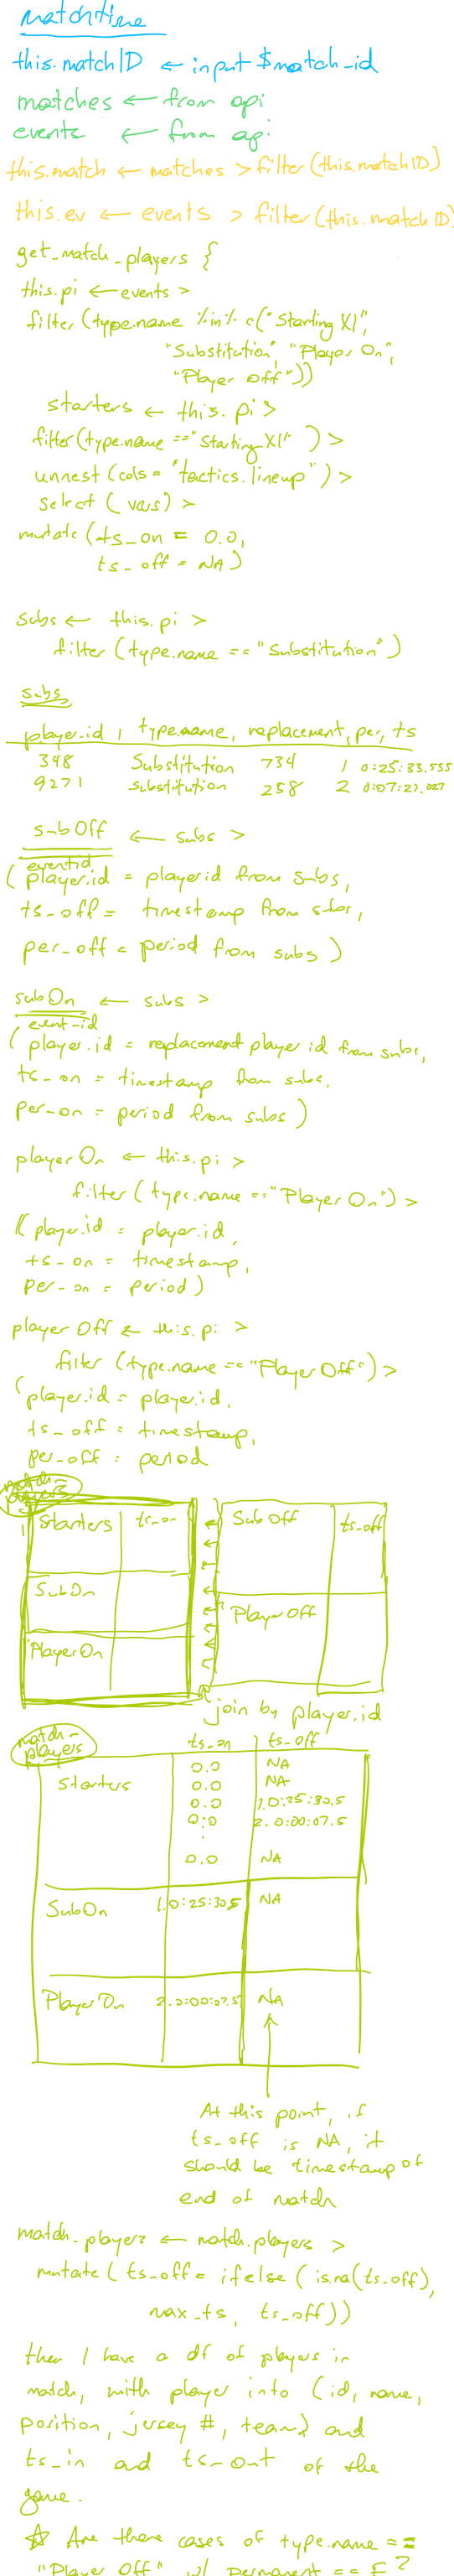 matchtime
this.matchID ← input $match_id
matches ← from api
events ← from api
this.match ← matches > filter(this.matchID)
this.ev ← events > filter(this.matchID)
get_match_players {
this.pi ← events >
filter(type.name %in% c("Starting XI",
"Substitution", "Player On",
"Player Off"))
starters ← this.pi >
filter(type.name == "Starting XI") >
unnest(cols = "tactics.lineup") >
select(vars) >
mutate(ts_on = 0.0,
ts_off = NA)
subs ← this.pi >
filter(type.name == "Substitution")
subs
player.id, type.name, replacement, per, ts
348 Substitution 734 1 0:25:33.555
9271 Substitution 258 2 0:07:21.027
subOff ← subs >
eventid
(player.id = playerid from subs,
ts_off = timestamp from subs,
per_off = period from subs)
subOn ← subs >
event_id
(player.id = replacement player id from subs,
ts_on = timestamp from subs,
per_on = period from subs)
playerOn ← this.pi >
filter(type.name == "Player On") >
(player.id = player.id,
ts_on = timestamp,
per_on = period)
playerOff ← this.pi >
filter(type.name == "Player Off") >
(player.id = player.id,
ts_off = timestamp,
per_off = period
match-players
Starters ts_on SubOff ts_off
SubOn PlayerOff
PlayerOn
join by player.id
match-players
ts_on ts_off
Starters 0.0 NA
0.0 NA
0.0 1.0:25:30.5
0.0 2.0:00:07.5
0.0 NA
SubOn 1.0:25:30.5 NA
PlayerOn 2.0:00:07.5 NA
At this point, if
ts_off is NA, it
should be timestamp of
end of match
match.players ← match.players >
mutate(ts_off = ifelse(is.na(ts_off),
max_ts, ts_off))
then I have a df of players in
match, with player info (id, name,
position, jersey #, team) and
ts_in and ts_out of the
game.
☆ Are there cases of type.name ==
"Player Off" w/ permanent == F?